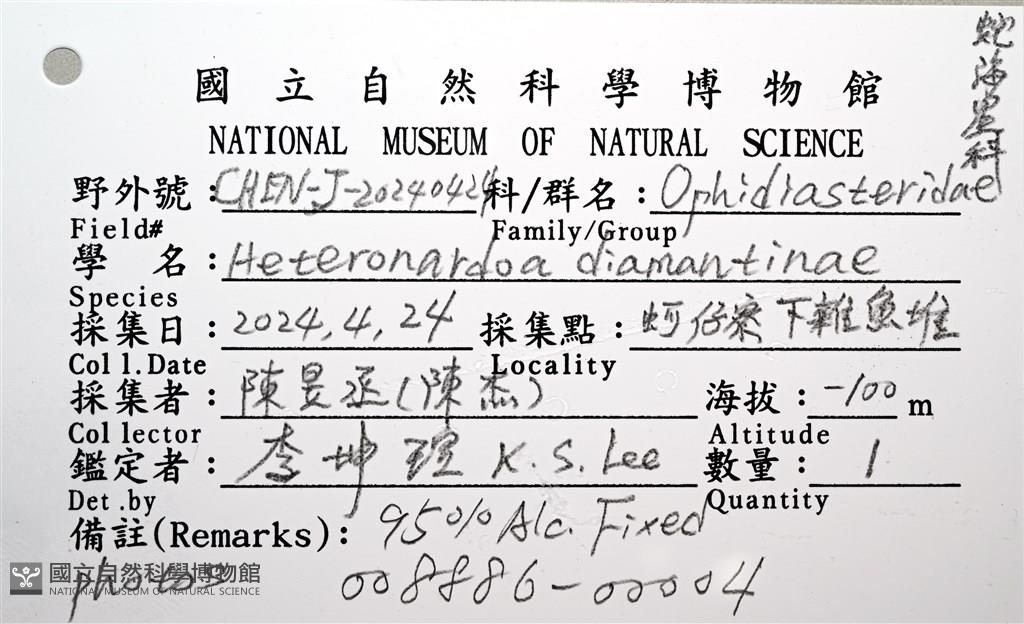 蛇海星科
國立自然科學博物館
NATIONAL MUSEUM OF NATURAL SCIENCE
野外號：CHEN-J-20240424 科/群名：Ophidiasteridae
Field# Family/Group
學名：Heteronardoa diamantinae
Species
採集日：2024,4,24 採集點：蚵仔寮下雜魚堆
Coll.Date Locality
採集者：陳昱丞(陳杰) 海拔：-100 m
Collector Altitude
鑑定者：李坤瑄 K.S.Lee 數量：1
Det.by Quantity
備註(Remarks)：95% Alc. Fixed
photos 008886-00004
國立自然科學博物館
NATIONAL MUSEUM OF NATURAL SCIENCE